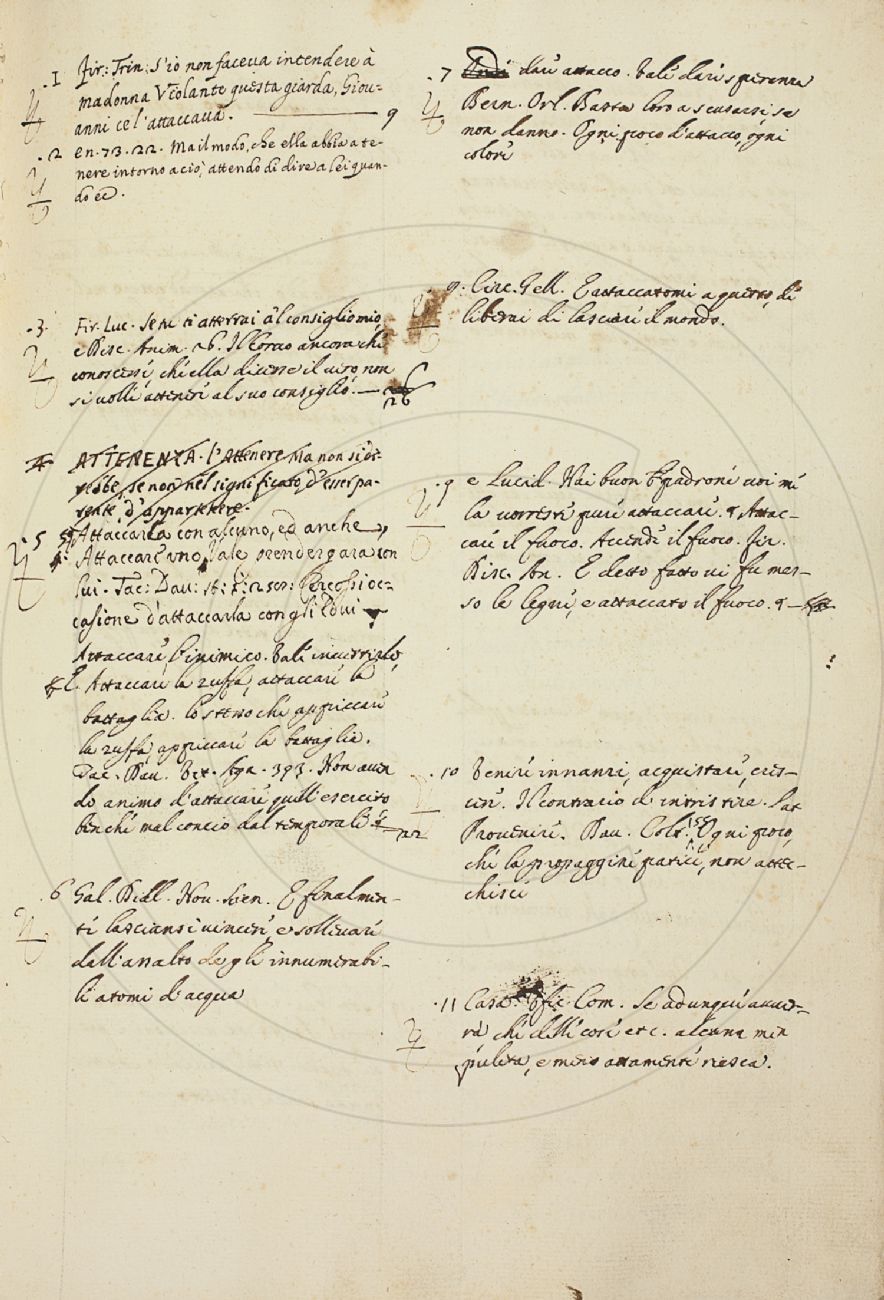 .1 Fir: Trin: S'io non faceva intendere à
madonna Violante questa giarda, Giou-
anni ce l'attaccaua. 9
.2 en. 73. 22. Ma il modo, che ella abbia a te-
nere intorno a ciò, attendo di dire a lei quan-
do ec.
.3. Fir. Luc. Se tu ti atterrai al consiglio mio,
e Disc. Anim. 26. Il Corbo ancora che
conoscessi, che ella dicesse il vero, non
si volle attenere al suo consiglio. 26
4 ATTENENZA. l'Attenere Ma non si do-
vrebbe, se non nel significato, d'esser pa-
rente, d'appartenere.
5 Attaccarla con alcuno, ed anche
Attaccare uno, Vale prender gara con
lui. Tac: Dau: st: 2: Percossi oc-
casione d'attaccarla con gli Edui
Attaccare l'inimico. Vale incitarlo,
E. Attaccare la zuffa, attaccare la
battaglia. lo stesso che appiccare
la zuffa, appiccare la battaglia.
Tac. Dau. Vit. Agr. 393. Non auen
do animo d'attaccare quell'esercito
benche mal concio dal temporale 22
.6 Gal. Dial. Nou. Scien. E finalmen-
te lasciansi vincere, e solleuare
dall'assalto degli innumerabi-
li atomi d'acqua
.7 dare attacco. Vale dare speranza
Bern. Orl. Basta loro a scusarsi se
non danno. Ogni poco d'attacco, ogni
colore
Circ. Gell. E attaccatomi a questo, di
liberai di lasciare il mondo.
.9 e Lucid. Hai buon padrone uoi me
la uorresti pure attaccare. Attac-
care il fuoco. Accende il fuoco. Fir.
Disc. An. E detto fatto ui fu mes-
so le legne, e attaccato il fuoco.
.10 Venire innanzi, acquistare, cres-
cere. Il contrario d'intristire. Lat
Prouenire. Dau. Colt. 159 Ogni poco,
che la propaggine patisce, non atte-
chisce
.11 Casa. Ufic. Com. Se adunque auuer-
rà che delle cose etc. alcuna men
pulita, e meno attamente riesca.